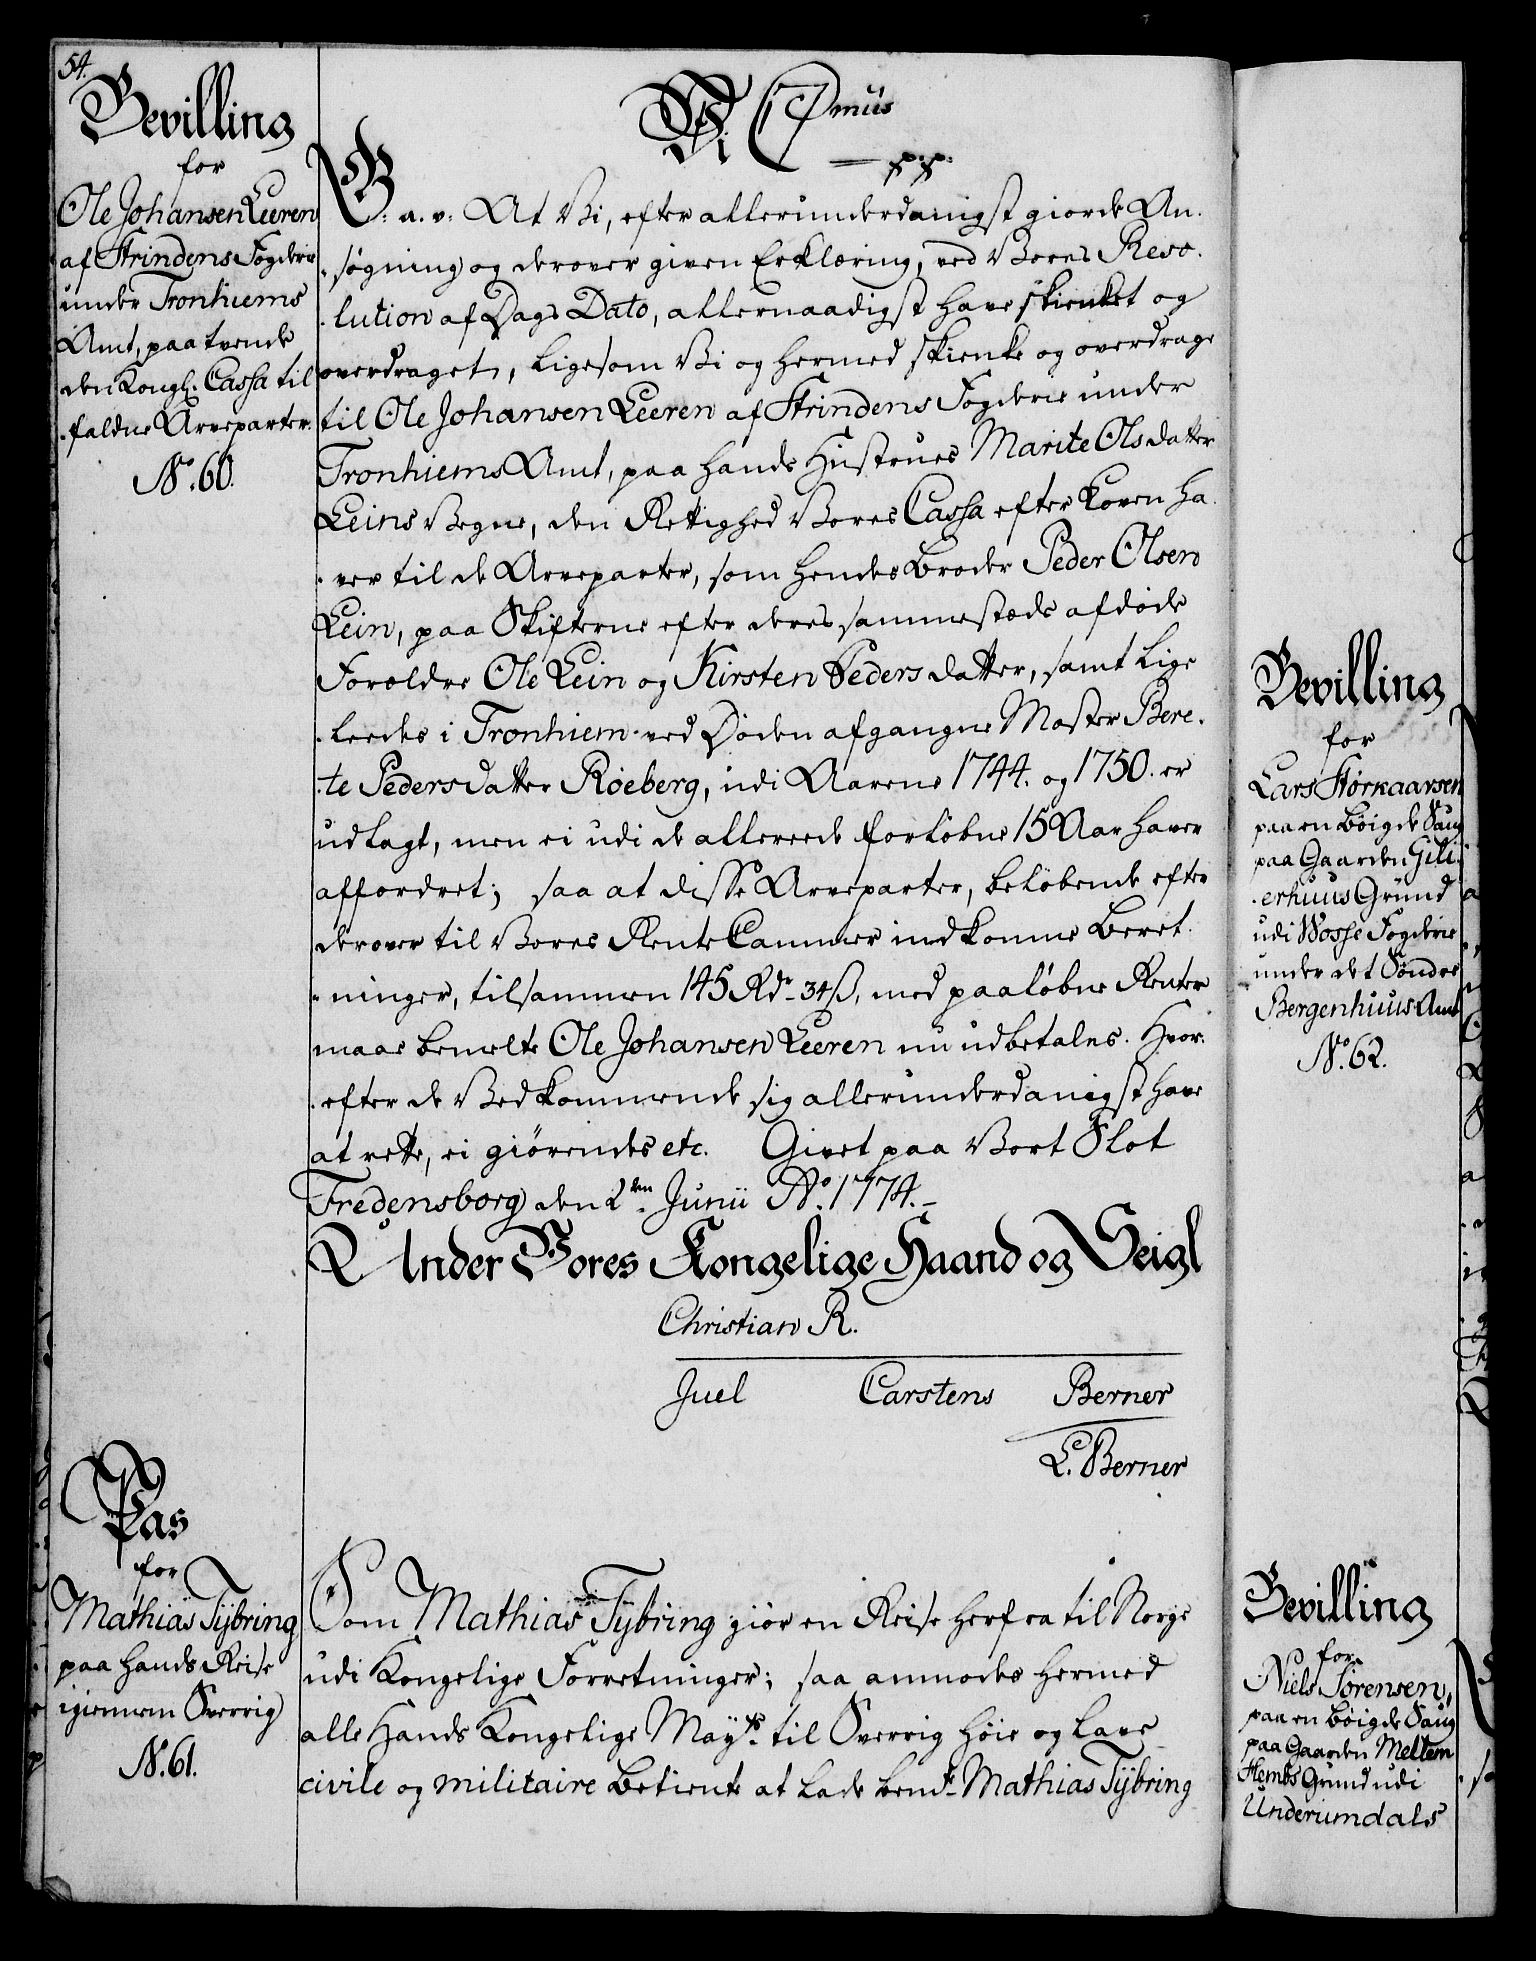 54.
Bevilling
for
Ole Johansen Leeren
af Strindens Fogderie
under Tronhiems
Amt, paa tvende
den Kongl. Cassa til
-faldne Arveparter.
No. 60.
Vi C7mus
p.p.
G: a. v: At Vi, efter allerunderdanigst giorde An-
-søgning og derover given Erklæring, ved Vores Reso-
-lution af Dags Dato, allernaadigst have skienket og
overdraget, ligesom Vi og hermed skienke og overdrage
til Ole Johansen Leeren af Strindens Fogderie under
Tronhiems Amt, paa hands Hustrues Marite Olsdatter
Leins Vegne, den Rettighed Vores Cassa efter Loven ha-
-ver til de Arveparter, som hendes Broder Peder Olsen
Lein, paa Skifterne efter deres sammestæds afdøde
Forældre Ole Lein og Kirsten Pedersdatter, samt lige-
-leedes i Tronhiem ved Døden afgangne Moster Bere-
-te Pedersdatter Røeberg, udi Aarene 1744. og 1750. er
udlagt, men ei udi de allereede forløbne 15 Aar haver
affordret; saa at disse Arveparter, beløbende efter
derover til Vores Rente Cammer indkomne Beret-
-ninger, tilsammen 145 Rdr. 34 ß, med paaløbne Renter
maae bemelte Ole Johansen Leeren nu udbetales. Hvor-
-efter de Vedkommende sig allerunderdanigst have
at rette, ei giørendes etc. Givet paa Vort Slot
Fredensborg den 2den Junii Ao. 1774.
Under Vores Kongelige Haand og Seigl
Christian R.
Juel Carstens Berner
L. Berner
Pas
for
Mathias Tÿbring
paa hands Reise
igiennem Sverrig
No. 61.
Som Mathias Tÿbring giør en Reise herfra til Norge
udi Kongelige Forretninger; saa anmodes hermed
alle Hands Kongelige Mayts. til Sverrig høie og lave
civile og militaire Betiente at lade bemte. Mathias Tÿbring
Bevilling
for
Lars Storkaarsen
paa en bøigde Saug
paa Gaarden Gili-
-erhuus Grund
udi Wosse Fogderie
under det Søndre
Bergenhuus Amt
No. 62.
Bevilling
for
Niels Sørensen,
paa en bøigde Saug
paa Gaarden Mellem
Hembs Grund udi
Underumdals